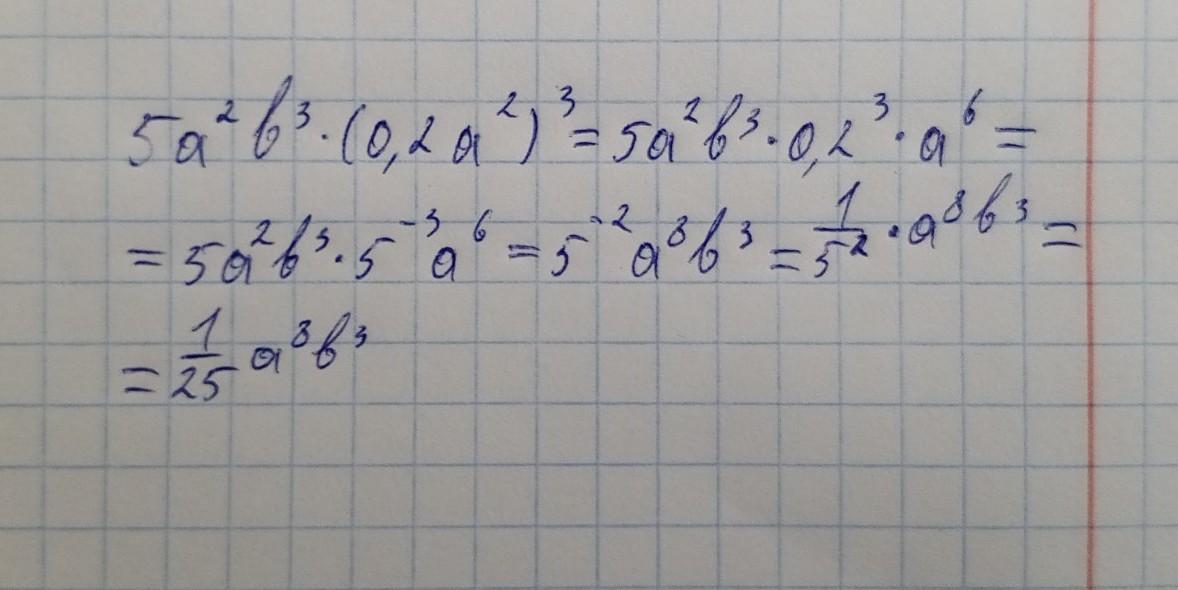 5a²b³·(0,2a²)³=5a²b³·0,2³·a⁶=
=5a²b³·5⁻³a⁶=5⁻²a⁸b³=1/5²·a⁸b³=
=1/25 a⁸b³